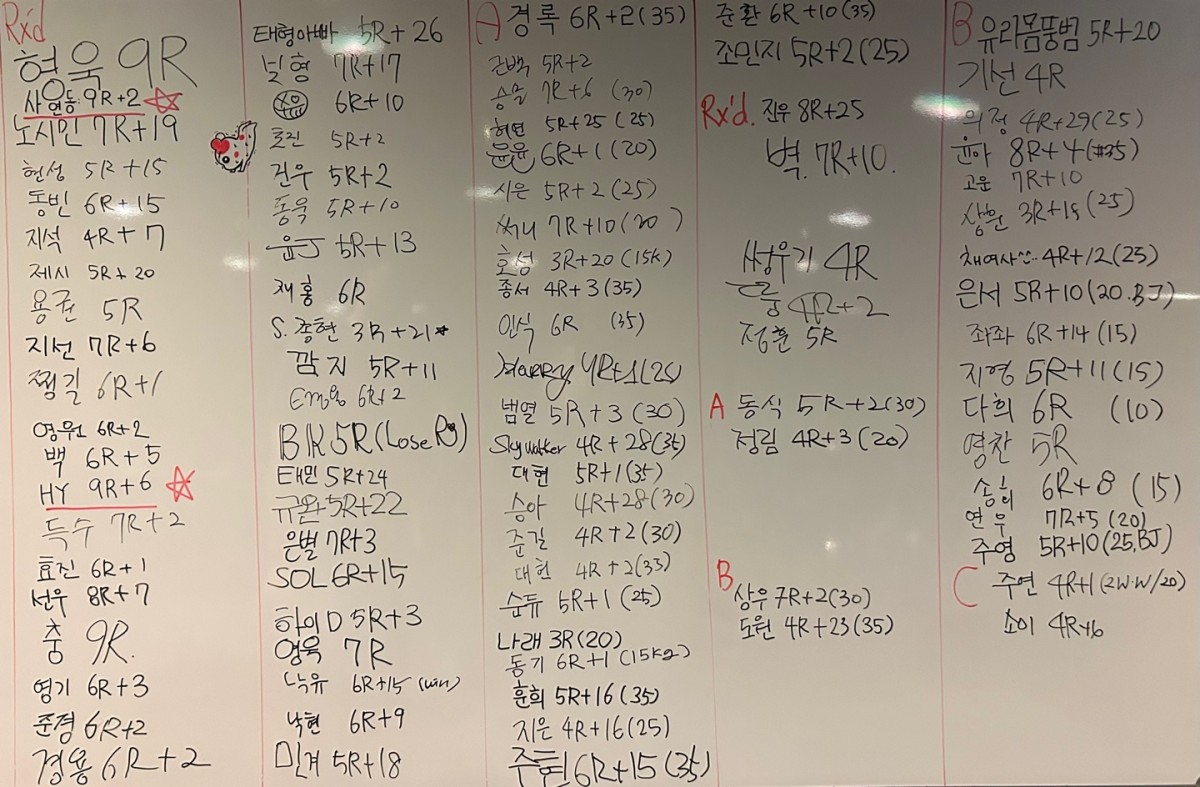 Rx'd
형욱 9R
사연동 9R+2
노시민 7R+19
현성 5R+15
동빈 6R+15
지석 4R+7
제시 5R+20
용권 5R
지선 7R+6
찡길 6R+1
영원 6R+2
백 6R+5
HY 9R+6
득수 7R+2
효진 6R+1
선우 8R+7
충 9R.
영기 6R+3
준경 6R+2
경용 6R+2
태형아빠 5R+26
닐형 7R+17
6R+10
효진 5R+2
건우 5R+2
동욱 5R+10
윤J 5R+13
재홍 6R
S. 종현 3R+21*
깜지 5R+11
6R+2
BK 5R (Lose R)
태민 5R+24
규완 5R+22
은별 7R+3
SOL 6R+15
하이D 5R+3
영욱 7R
낙유 6R+15
낙현 6R+9
민겨 5R+18
A 경록 6R+2(35)
근백 5R+2
승율 7R+6 (30)
허면 5R+25 (25)
윤윤 6R+1 (20)
시은 5R+2 (25)
써니 7R+10 (20)
호성 3R+20 (15k)
종서 4R+3 (35)
인식 6R (35)
Harry 4R+1(25)
범열 5R+3 (30)
Skywalker 4R+28(35)
대현 5R+1(35)
승아 4R+28(30)
준길 4R+2(30)
대헌 4R+2(33)
순듀 5R+1 (25)
나래 3R(20)
동기 6R+1 (15kg)
훈희 5R+16 (35)
지은 4R+16(25)
주현 6R+15 (35)
준환 6R+10 (35)
조민지 5R+2 (25)
Rx'd. 진우 8R+25
벽. 7R+10.
쌈우기 4R
4R+2
정훈 5R
A 동식 5R+2(30)
정림 4R+3 (20)
B 상우 7R+2(30)
도원 4R+23(35)
B 유리몸뚱범 5R+20
기선 4R
의정 4R+29(25)
윤아 8R+4 (35)
고운 7R+10
상원 3R+19 (25)
채여사 4R+12(25)
은서 5R+10 (20.BJ)
좌좌 6R+14 (15)
지영 5R+11 (15)
다희 6R (10)
영찬 5R
송희 6R+8 (15)
연우 7R+5 (20)
주영 5R+10 (25,BJ)
C 주연 4R+1 (2W.W/20)
소이 4R+6